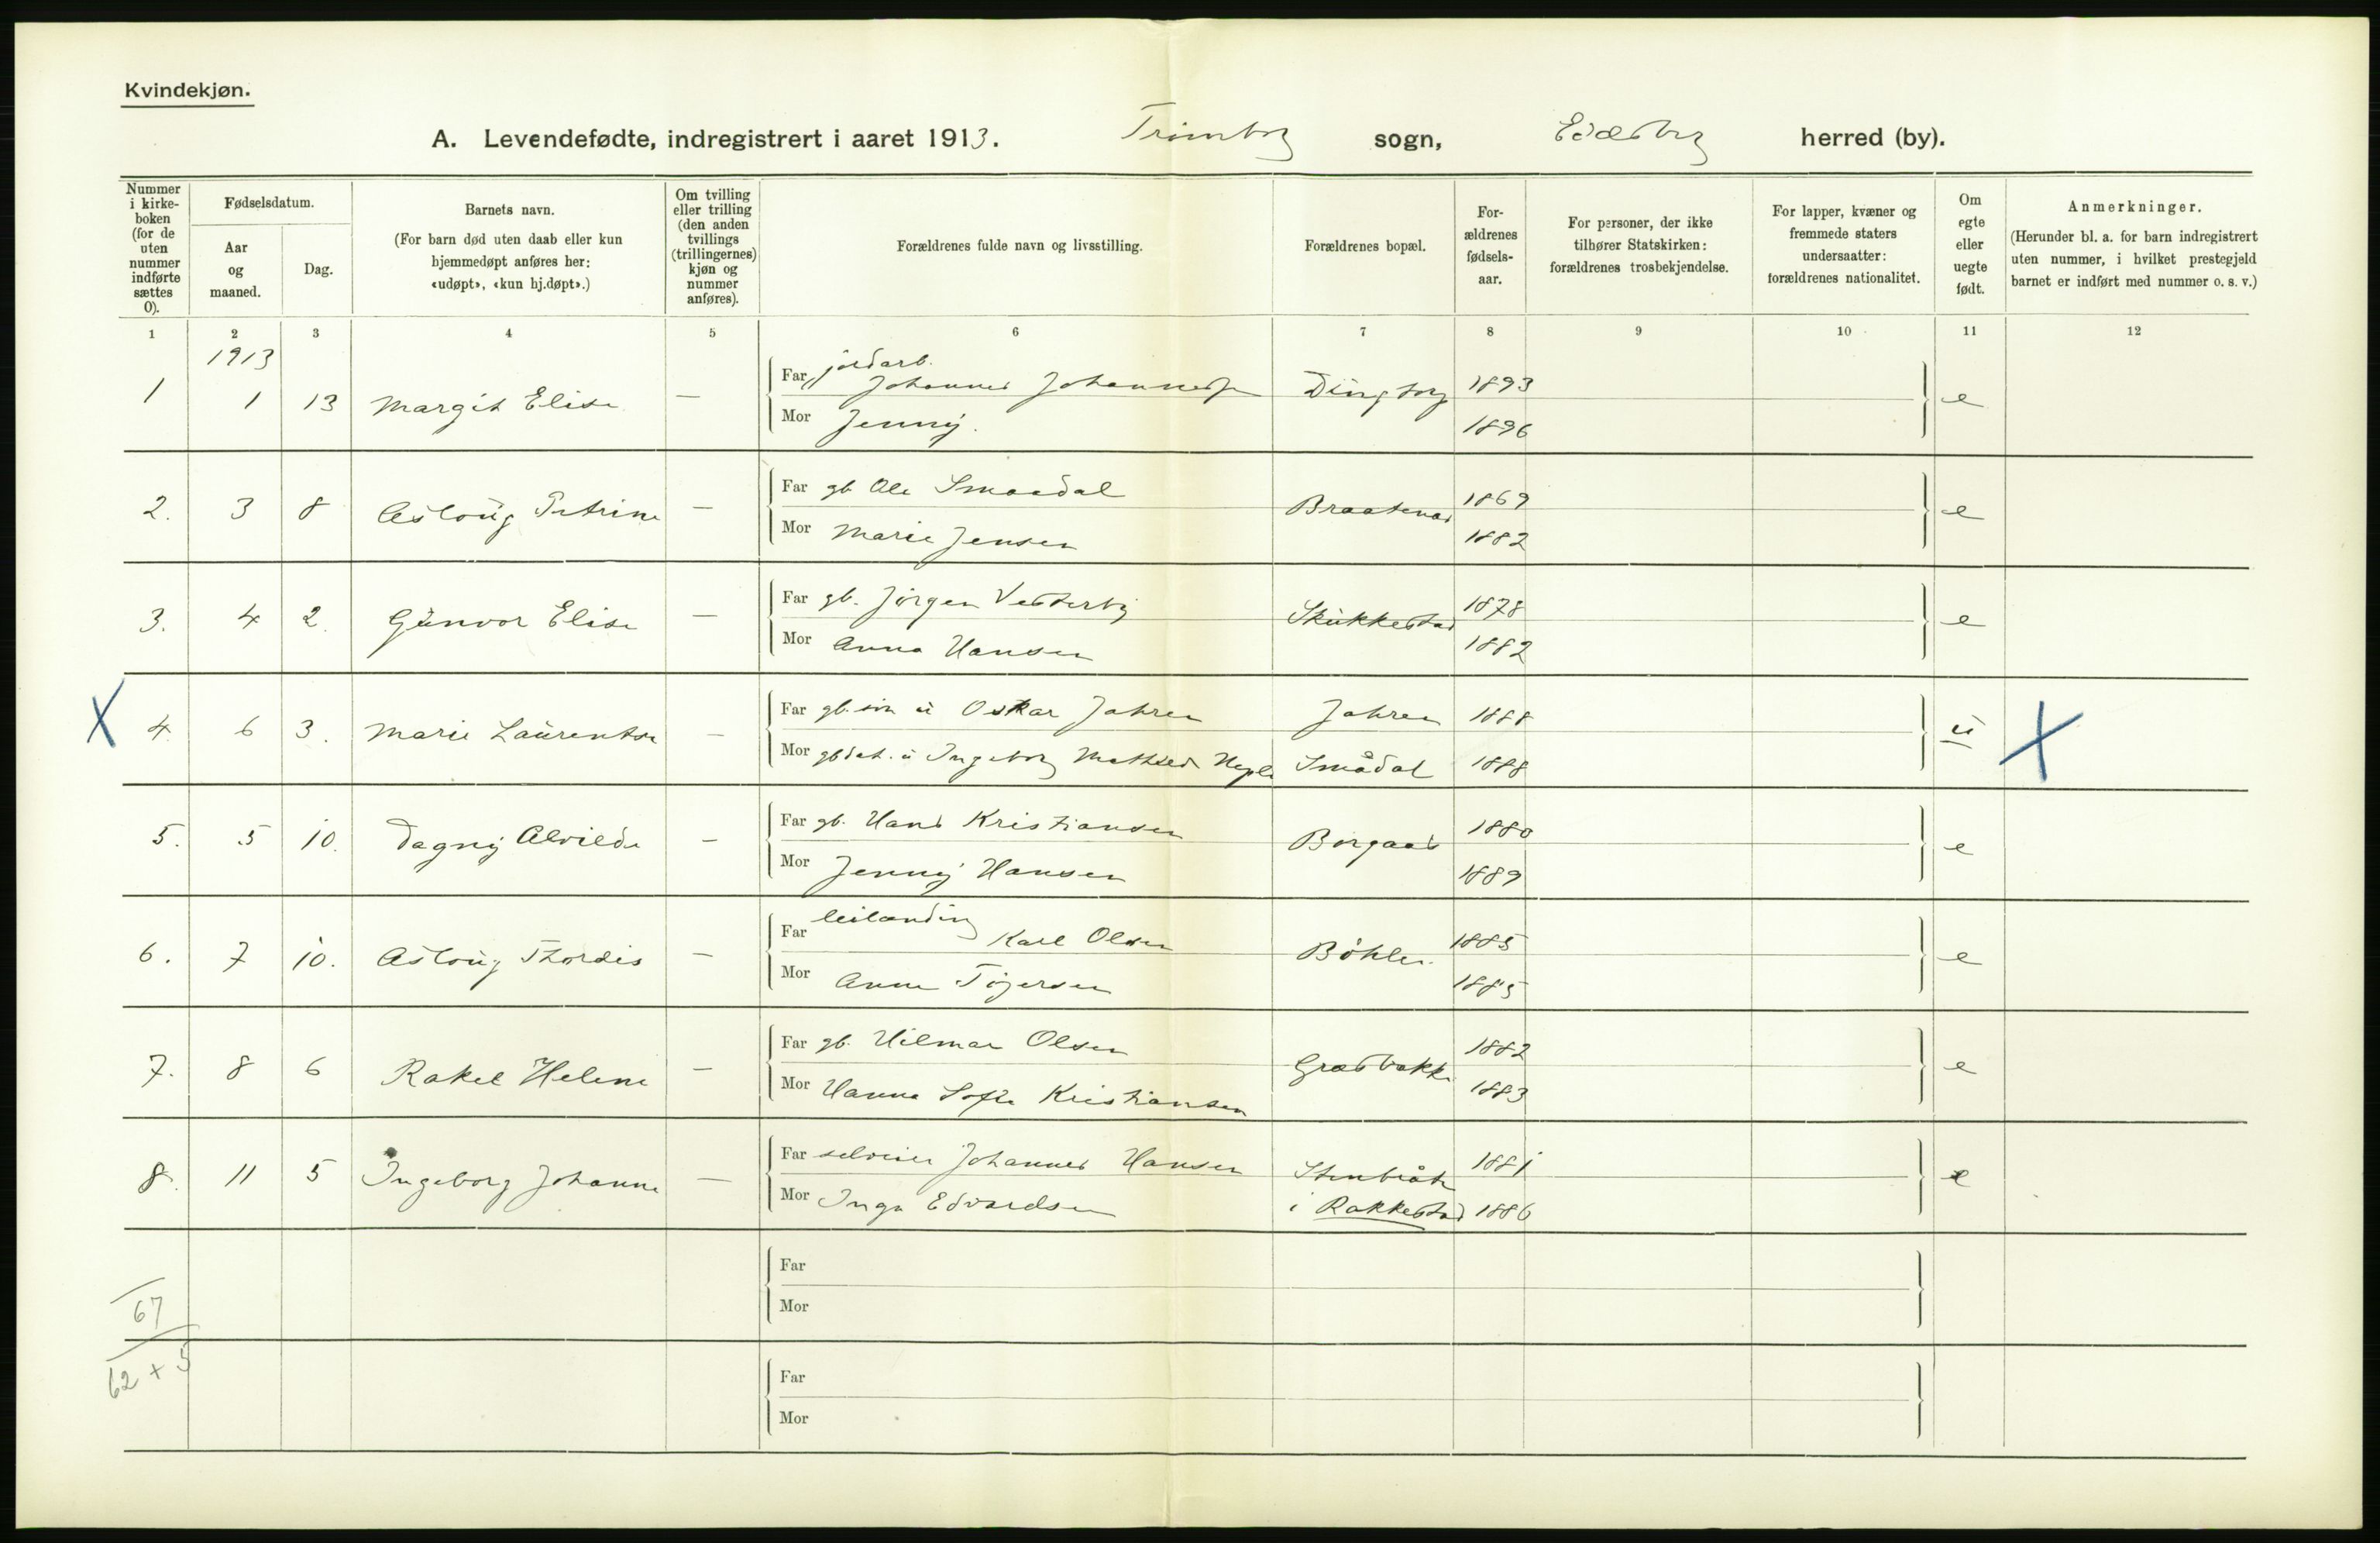 Kvindekjøn.
A. Levendefødte, indregistrert i aaret 1913. Trømborg sogn, Eidsberg herred (by).
Nummer i kirke-boken (for de uten nummer indførte sættes 0).
Fødselsdatum.
Aar og maaned.
Dag.
Barnets navn.
(For barn død uten daab eller kun hjemmedøpt anføres her: «udøpt», «kun hj.døpt».)
Om tvilling eller trilling (den anden tvillings (trillingernes) kjøn og nummer anføres).
Forældrenes fulde navn og livsstilling.
Forældrenes bopæl.
For-ældrenes fødsels-aar.
For personer, der ikke tilhører Statskirken: forældrenes trosbekjendelse.
For lapper, kvæner og fremmede staters undersaatter: forældrenes nationalitet.
Om egte eller uegte født.
Anmerkninger.
(Herunder bl. a. for barn indregistrert uten nummer, i hvilket prestegjeld barnet er indført med nummer o. s. v.)
1 2 3 4 5 6 7 8 9 10 11 12
1913
1 1 13 Margit Elise — Far jordarb. Johannes Johannessen 1893 e
Mor Jenny. 1896
2. 3 8 Aslaug Petrine — Far gb. Ole Smaadal Braatenas 1869 e
Mor Marie Jensen 1882
3. 4 2. Gunvor Elise — Far gb. Jørgen Vesterby Skukkestad 1878 e
Mor Anna Hansen 1882
X 4. 6 3. Marie Laurentse — Far gb. søn u Oskar Jahren Jahren 1888 u X
Mor gbdat. u Ingeborg Mathilde Smådal 1888
5. 5 10. Dagny Alvilde — Far gb. Hans Kristiansen Borgaas 1880 e
Mor Jenny Hansen 1889
6. 7 10. Aslaug Thordis — Far leilænding Karl Olsen Bøhler 1885 e
Mor Anna 1885
7. 8 6 Rakel Helene — Far gb. Hilmar Olsen Græsbakke 1882 e
Mor Hanna Sofie Kristiansen 1883
8. 11 5 Ingeborg Johanne — Far selveier Johannes Hansen Stenbråte 1881 e
Mor Inga Edvardsen i Rakkestad 1886
Far
Mor
67
62 + 5
Far
Mor